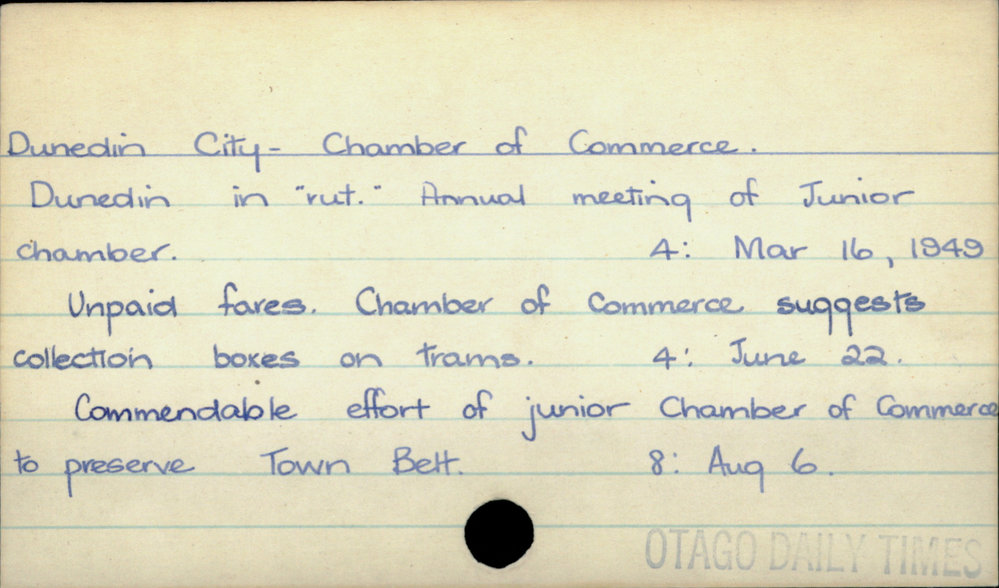 Dunedin City- Chamber of Commerce.
Dunedin in "rut." Annual meeting of Junior
chamber. 4: Mar 16, 1949
Unpaid fares. Chamber of Commerce suggests
collection boxes on trams. 4: June 22.
Commendable effort of junior Chamber of Commerce
to preserve Town Belt. 8: Aug 6.
OTAGO DAILY TIMES